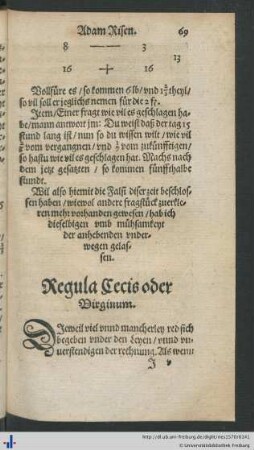 Adam Risen. 69
8 — — 3
13
16 + 16
Vollfüre es / so kommen 6 lb / vnd theyl /
so vil soll er jeglichs nemen für die 2 fr.
Item / Einer fragt wie vil es geschlagen ha-
be / mann antwort jm: Du weist daß der tag 15
stund lang ist / nun so du wissen wilt / wie vil
vom vergangnen / vnd vom zukünfftigen /
so hastu wie vil es geschlagen hat. Machs nach
dem jetz gesatzten / so kommen fünffthalbe
stundt.
Wil also hiemit die Falsi diser zeit beschlos-
sen haben / wiewol andere fragstück zuerkle-
ren mehr vorhanden gewesen / hab ich
dieselbigen vmb mühsamkeyt
der anhebenden vnder-
wegen gelas-
sen.
Regula Cecis oder
Virginum.
DJeweil viel vnnd mancherley red sich
begeben vnder den Leyen / vnnd vn-
uerstendigen der rechnung. Als wenn
J v
http://dl.ub.uni-freiburg.de/diglit/
© Universitätsbibliothek Freiburg